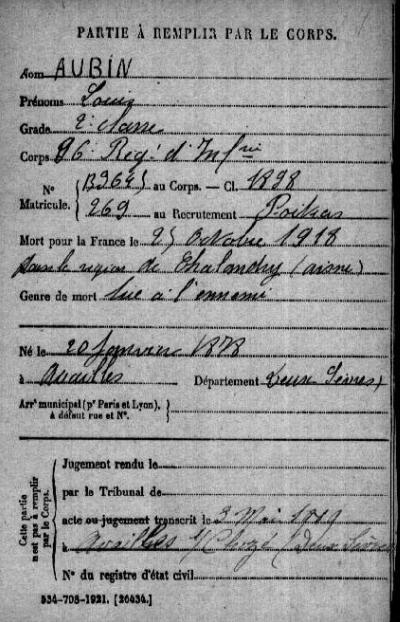 PARTIE À REMPLIR PAR LE CORPS.
Nom AUBIN
Prénoms Louis
Grade 2e classe
Corps 96e Regt d'Infrie
Nº Matricule. { B9645 au Corps. — Cl. 1898
269 au Recrutement Poitiers
Mort pour la France le 25 Octobre 1918
dans la région de (aisne)
Genre de mort tué à l'ennemi
Né le 20 Janvier 1878
à Availles Département Deux Sèvres)
Arrt municipal (pr Paris et Lyon), à défaut rue et Nº. }
Cette partie n'est pas à remplir par le Corps.
Jugement rendu le
par le Tribunal de
acte ou jugement transcrit le 3 Mai 1919
à Availles s/ Chizé (Deux Sèvres
Nº du registre d'état civil
534-708-1921. [26434.]